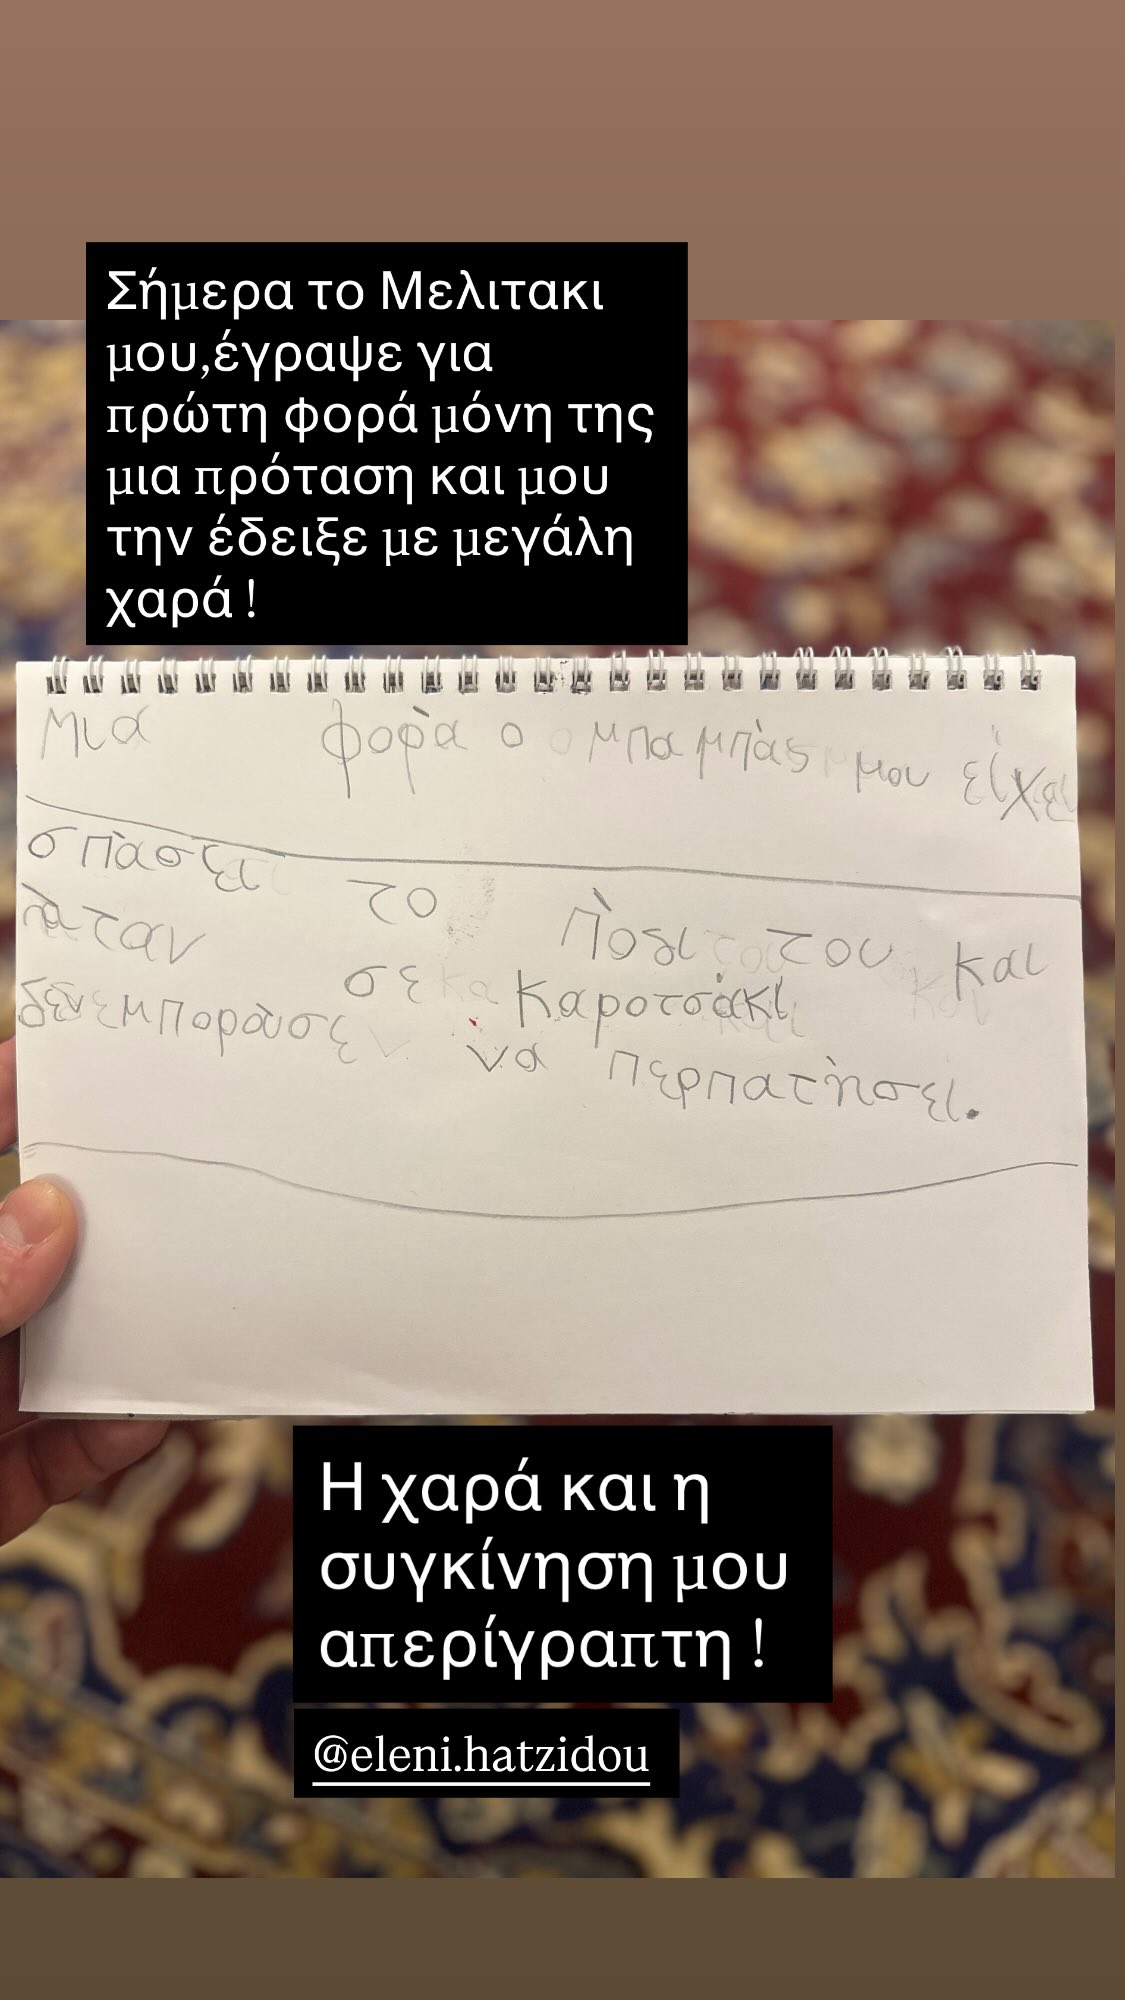 Σήμερα το Μελιτακι
μου,έγραψε για
πρώτη φορά μόνη της
μια πρόταση και μου
την έδειξε με μεγάλη
χαρά !
μια φορὰ ο μπαμπὰς μου είχε
σπὰσει το
Πὸδι του και
ὴταν σε καροτσὰκι
δεν εμποροὺσε να περπατὴσει.
Η χαρά και η
συγκίνηση μου
απερίγραπτη !
@eleni.hatzidou